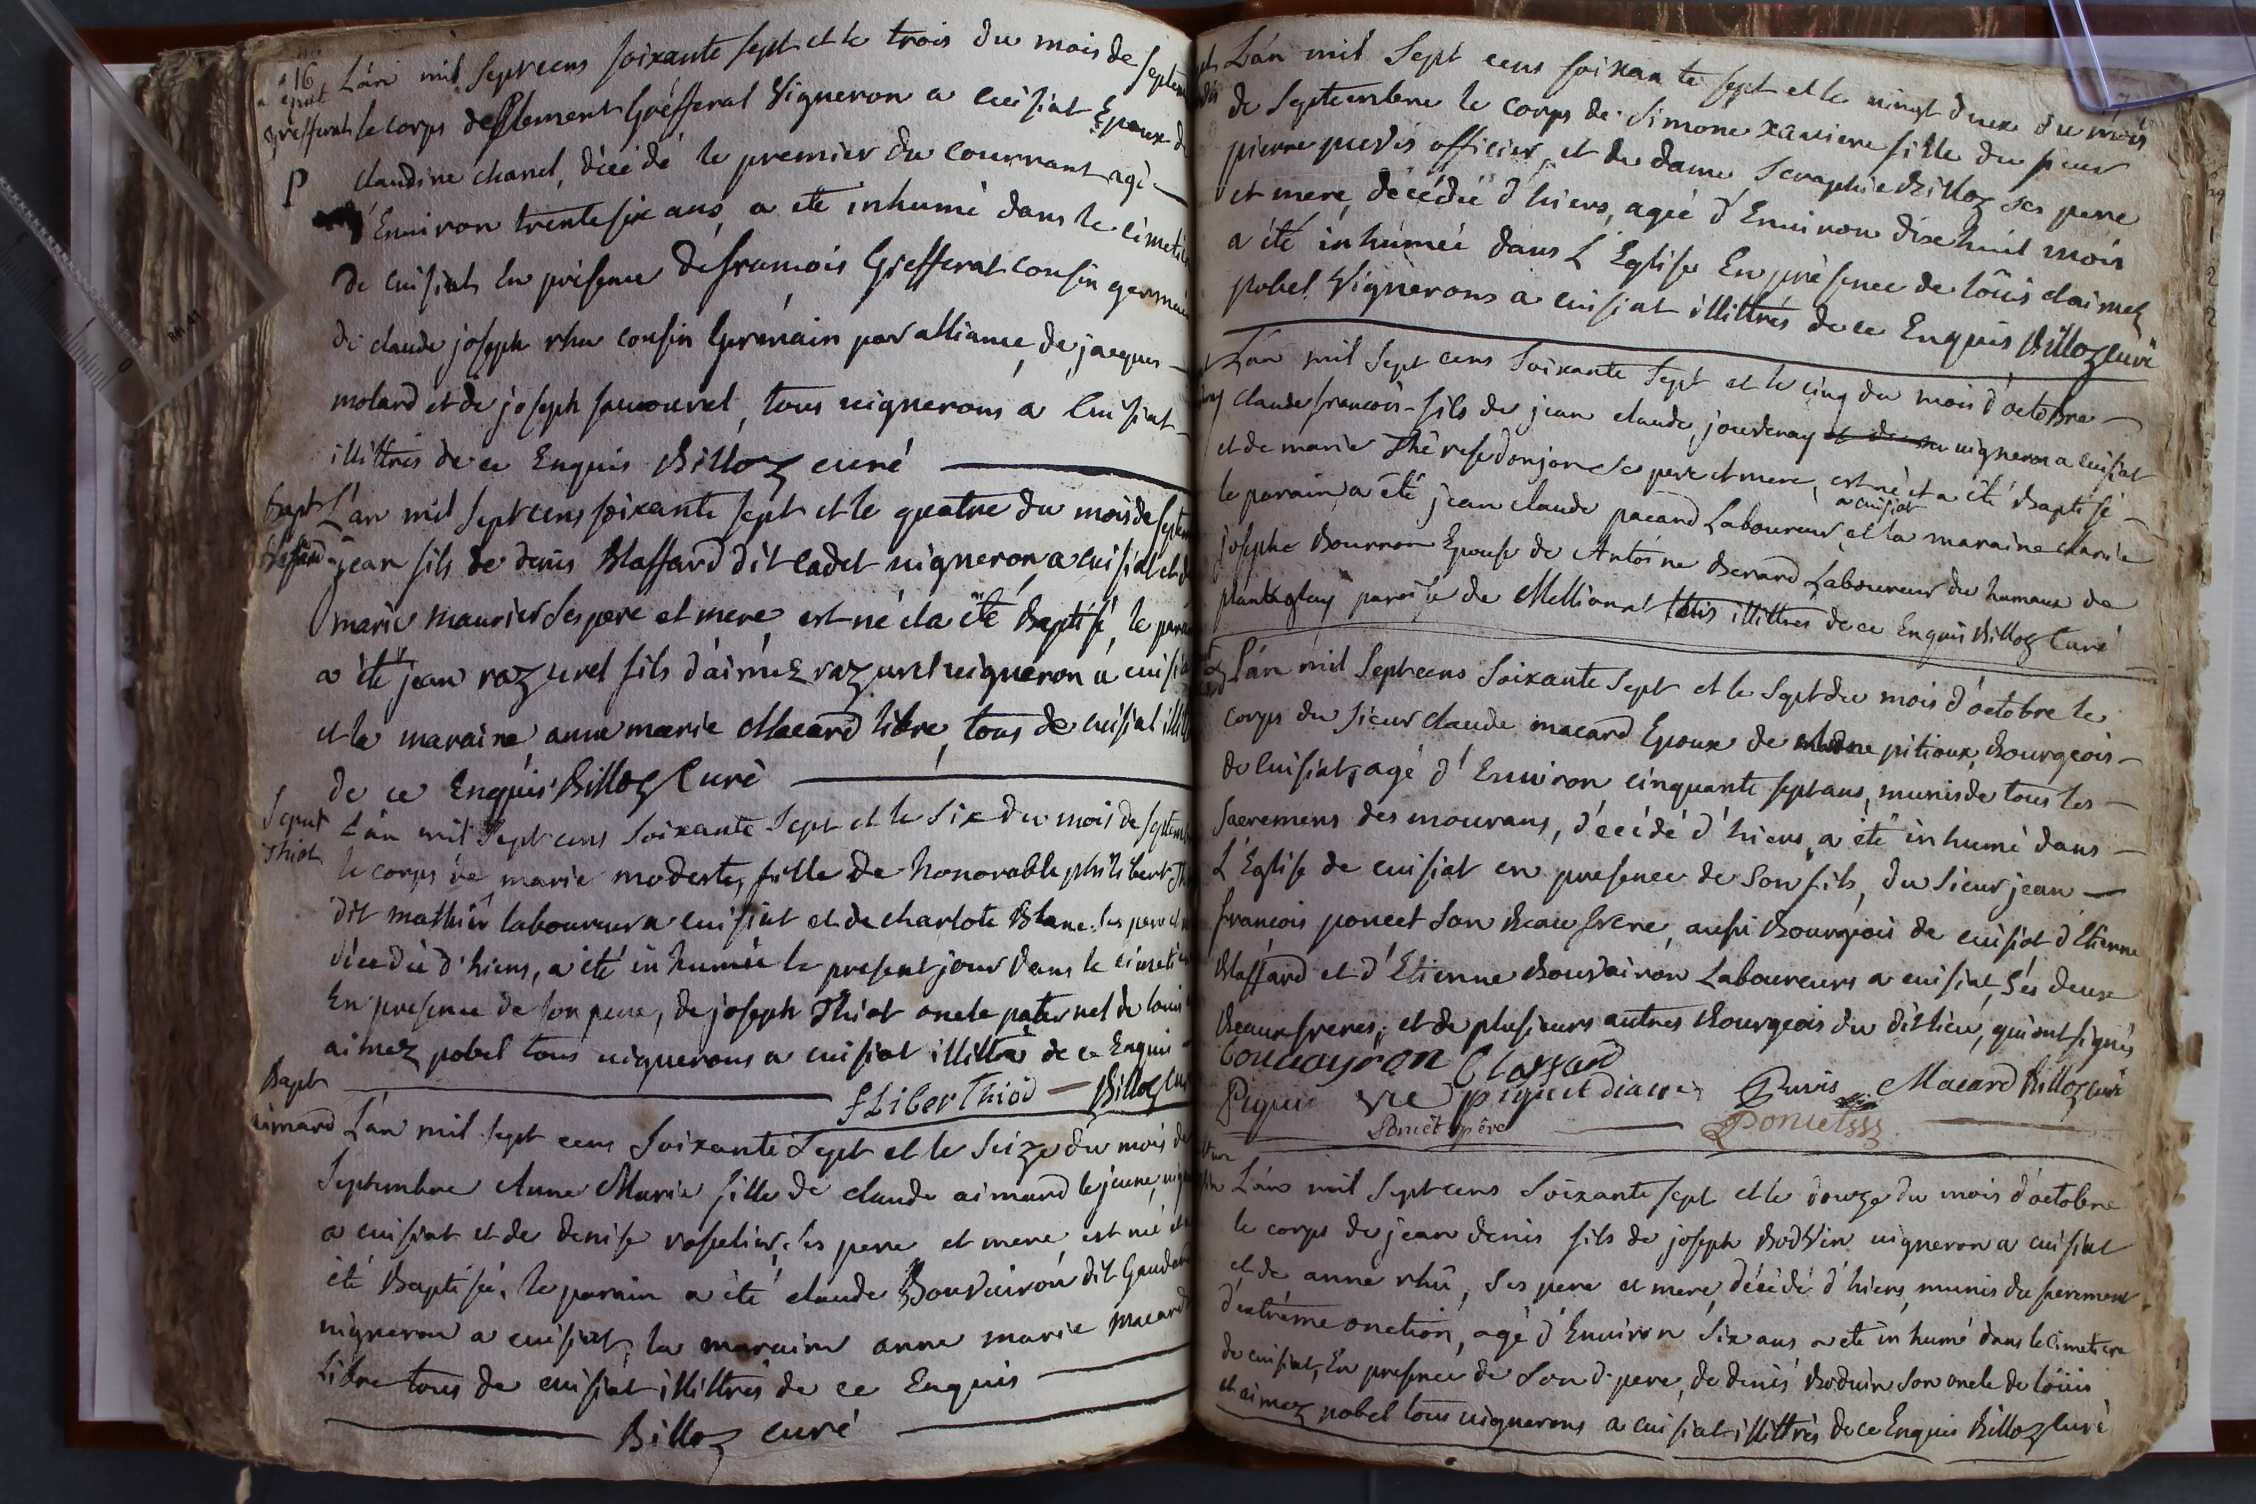 16
L'an mil sept cens soixante sept et le trois du mois de septem
Grefferat le corps de Clement Grefferat Vigneron a cuisiat Epoux de
P claudine chanel, décédé le premier du courrant agé
d'Environ trente six ans, a été inhumé dans le cimetie
de cuisiat en présence de francois Grefferat cousin germain
de claude joseph rhu cousin Germain par alliance, de jacques
molard et de joseph pucouvel, tous vignerons a Cuisiat
illittrés de ce Enquis Billoz curé
Bapt L'an mil sept cens soixante sept et le quatre du mois de septem
Blaffard jean fils de denis Blaffard dit cadet vigneron a cuisiat et de
marie maurier ses pere et mere est né et a été Baptisé, le parai
a été jean razurel fils d'aimez razurel vigneron a cuisia
et la maraine anne marie Macard libre, tous de cuisiat illit
de ce Enquis Billoz Curé
Sepult L'an mil sept cens soixante sept et le six du mois de septem
Thiot le corps de marie modeste, fille de honorable philibert Th
dit mathieu laboureur a cuisiat et de charlote Blanc ses pere et
décédée d'hiers, a été inhumée le present jour dans le cimeti
En presence de son pere, de joseph Thiot oncle paternel de louis
aimez pobel tous vignerons a cuisiat illittré de ce Enquis
fLiber Thiod Billoz curé
Bapt
aimard L'an mil sept cens soixante sept et le seize du mois de
Septembre Anne Marie fille de claude aimard le jeune, vign
a cuisiat et de denise raselier, ses pere et mere est née et
été Baptisée, le parain a été claude Bouvairon dit Gaudar
vigneron a cuisiat, la maraine anne marie macard
Libre tous de cuisiat illittrés de ce Enquis
Billoz curé
L'an mil sept cens soixante sept et le vingt deux du mois
de Septembre le corps de Simone xaviere fille du sieur
pierre puvis officier, et de dame Seraphie Billoz ses pere
et mere, décédée d'hiers, agée d'Environ dixe huit mois
a été inhumée dans L'Eglise En presence de louis d'aimez
pobel Vignerons a cuisiat illittrés de ce Enquis Billoz curé
L'an mil sept cens soixante sept et le cinq du mois d'octobre
claude francois fils de jean claude jouvenay vigneron a cuisiat
et de marie Therese donjon se pere et mere, est né et a été Baptisé
le parain a été jean claude pacard Laboureur a cuisiat et la maraine Marie
josephe Bourron Epouse de Antoine Berard Laboureur du hameau de
plantaglay paroisse de Mellionat illittres de ce Enquis Billoz Curé
L'an mil sept cens soixante sept et le sept du mois d'octobre le
corps du sieur claude macard Epoux de pitioux, Bourgeois
de Cuisiat, agé d'Environ cinquante sept ans, munis de tous les
Sacremens des mourans, décédé d'hiers, a été inhumé dans
L'Eglise de cuisiat en presence de Son fils, du Sieur jean
francois poncet Son Beau frere, aussi Bourgeois de cuisiat d'Etienne
Blaffard et d'Etienne Bouvairon Laboureurs a cuisiat, Ses deux
Beaux freres, et de plusieurs autres Bourgeois du dit lieu, qui ont signés
Bouvayron Claffard
Piquet diacre Puvis Macard Billoz curé
Poncet pere Poncet
L'an mil sept cens soixante sept et le douze du mois d'octobre
le corps de jean denis fils de joseph BodVin vigneron a cuisiat
et de anne rhû, Ses pere et mere, décédé d'hiers, munis du sacrement
d'extrême onction, agé d'Environ Six ans a été inhumé dans le cimetiere
de cuisiat, En presence de Son d. pere, de denis Boduin Son oncle de louis
et aimez pobel tous vignerons a cuisiat illittrés de ce Enquis Billoz Curé